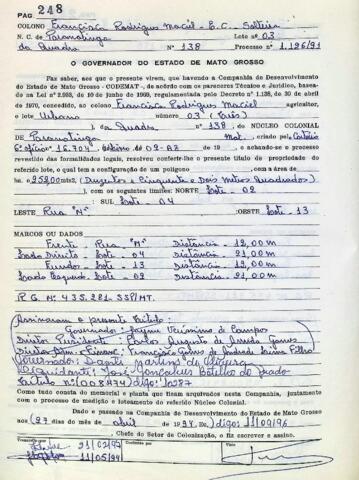 PAG 248
COLONO Francisca Rodrigues Maciel - B.C. - Solteira
N. C. de Paranatinga Lote nº 03
da Quadra Nº 138 Processo nº 1.126/91
O GOVERNADOR DO ESTADO DE MATO GROSSO
Faz saber, aos que o presente virem, que havendo a Companhia de Desenvolvimento
do Estado de Mato Grosso - CODEMAT-, de acordo com os pareceres Técnico e Jurídico, basea-
do na Lei nº 2.993, de 10 de junho de 1969, regulamentada pelo Decreto nº 1.138, de 30 de abril
de 1970, concedido, ao colono Francisca Rodrigues Maciel agricultor,
o lote Urbano número 03 (três)
), da Quadra nº 138, do NÚCLEO COLONIAL
de Paranatinga Mat. Cartório
6º ofício nº 16.704 02-07 de 19 , e achando-se o processo
revestido das formalidades legais, resolveu conferir-lhe o presente título de propriedade do
referido lote, o qual tem a configuração de um polígono com a área de
ha= 252,00 mts (Duzentos e Cinquenta e Dois Metros Quadrados)
, com os seguintes limites: NORTE Lote - 02
SUL Lote - 04
LESTE Rua "M" :OESTE Lote - 13
MARCOS OU DADOS
Frente - Rua "M" Distância - 12,00m
Lado Direito - Lote - 04 Distância - 21,00m
Fundos - Lote - 13 Distância - 12,00m
Lado Esquerdo - Lote - 02 Distância - 21,00m
R.G. Nº 435.281 SSP/MT.
Assinaram o presente título:
Governador: Jayme Veríssimo de Campos
Diretor Presidente: Carlos Augusto de Arruda Gomes
Diretor Francisco Gomes de Andrade Lima Filho
Governador: Dante Martins de Oliveira
Liquidante: José Gonçalves Botelho do Prado
Título nº (008474) digo:
E tudo consta do memorial e planta que ficam arquivados nesta Companhia, juntamente
com o processo de medição e loteamento do referido Núcleo Colonial.
Dado e passado na Companhia de Desenvolvimento do Estado de Mato Grosso
aos (27 dias do mês de abril de 1994 ) digo: 11/09/96
Chefe do Setor de Colonização, o fiz escrever e assino.
Transcrito por Conferido por Visto